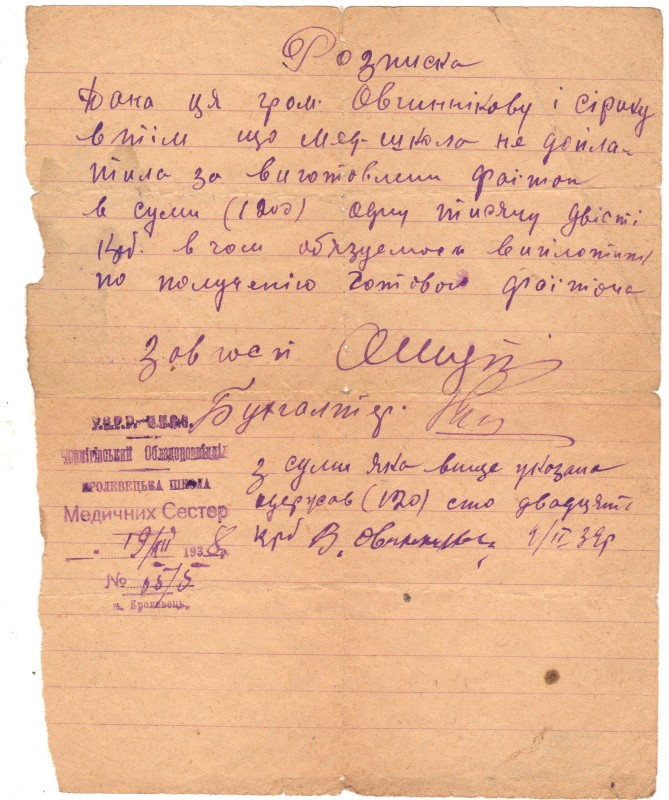 Розписка
Дана ця гром. Овчиннікову і сіраку
в тім що мед-школа не допла-
тила за виготовлени фаітон
в суми (1200) одну тисячу двісті
крб. в чом обязуемось виплотит
по получению готового фаітона
Зав госп
Бухгалтер.
У.С.Р.Р.
Чернігівський Облздороввідділ
КРОЛЕВЕЦЬКА ШКОЛА
Медичних Сестер
19/XII 1938 р.
№
м. Кролевець,
з суми яка више указана
одержав (120) сто двадцять
крб В. Овчинніков 9/II 39р